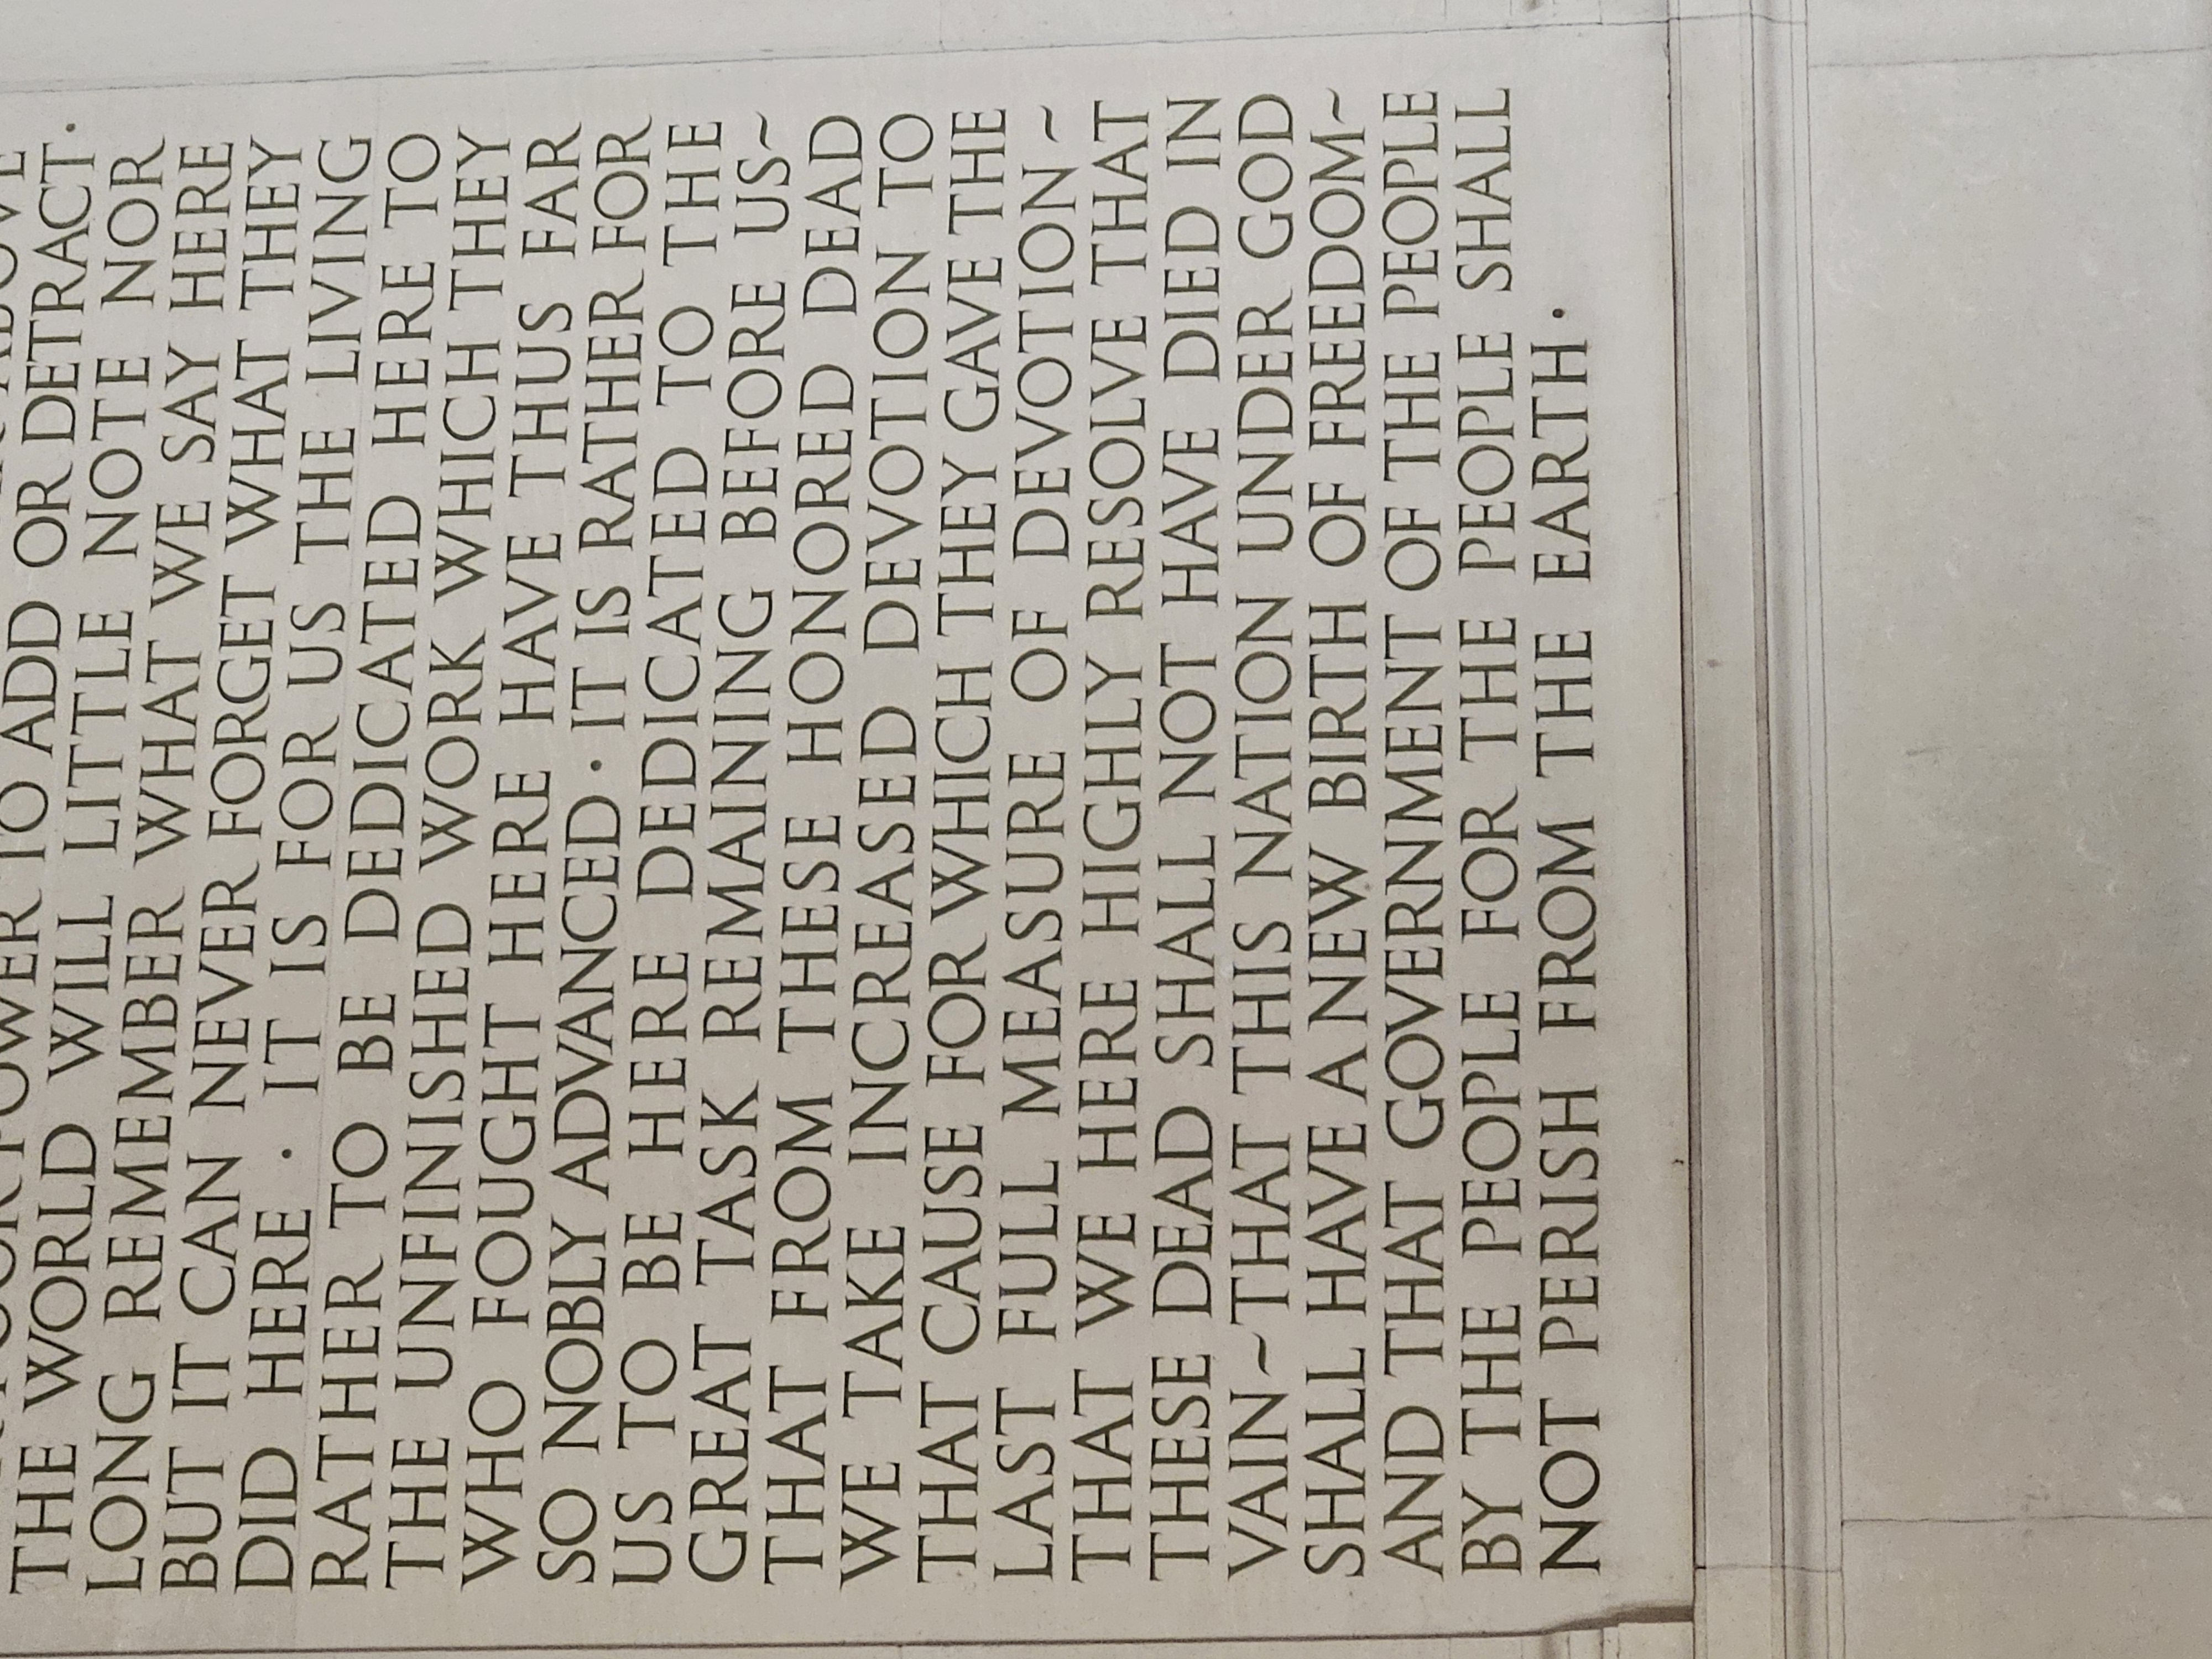 POWER TO ADD OR DETRACT.
THE WORLD WILL LITTLE NOTE NOR
LONG REMEMBER WHAT WE SAY HERE
BUT IT CAN NEVER FORGET WHAT THEY
DID HERE. IT IS FOR US THE LIVING
RATHER TO BE DEDICATED HERE TO
THE UNFINISHED WORK WHICH THEY
WHO FOUGHT HERE HAVE THUS FAR
SO NOBLY ADVANCED. IT IS RATHER FOR
US TO BE HERE DEDICATED TO THE
GREAT TASK REMAINING BEFORE US~
THAT FROM THESE HONORED DEAD
WE TAKE INCREASED DEVOTION TO
THAT CAUSE FOR WHICH THEY GAVE THE
LAST FULL MEASURE OF DEVOTION~
THAT WE HERE HIGHLY RESOLVE THAT
THESE DEAD SHALL NOT HAVE DIED IN
VAIN~THAT THIS NATION UNDER GOD
SHALL HAVE A NEW BIRTH OF FREEDOM~
AND THAT GOVERNMENT OF THE PEOPLE
BY THE PEOPLE FOR THE PEOPLE SHALL
NOT PERISH FROM THE EARTH.